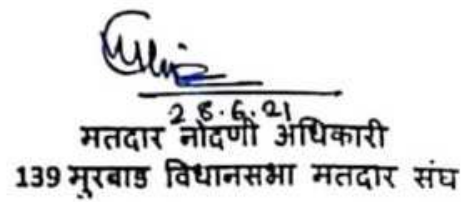 28.6.21
मतदार नोंदणी अधिकारी
139 मुरबाड विधानसभा मतदार संघ